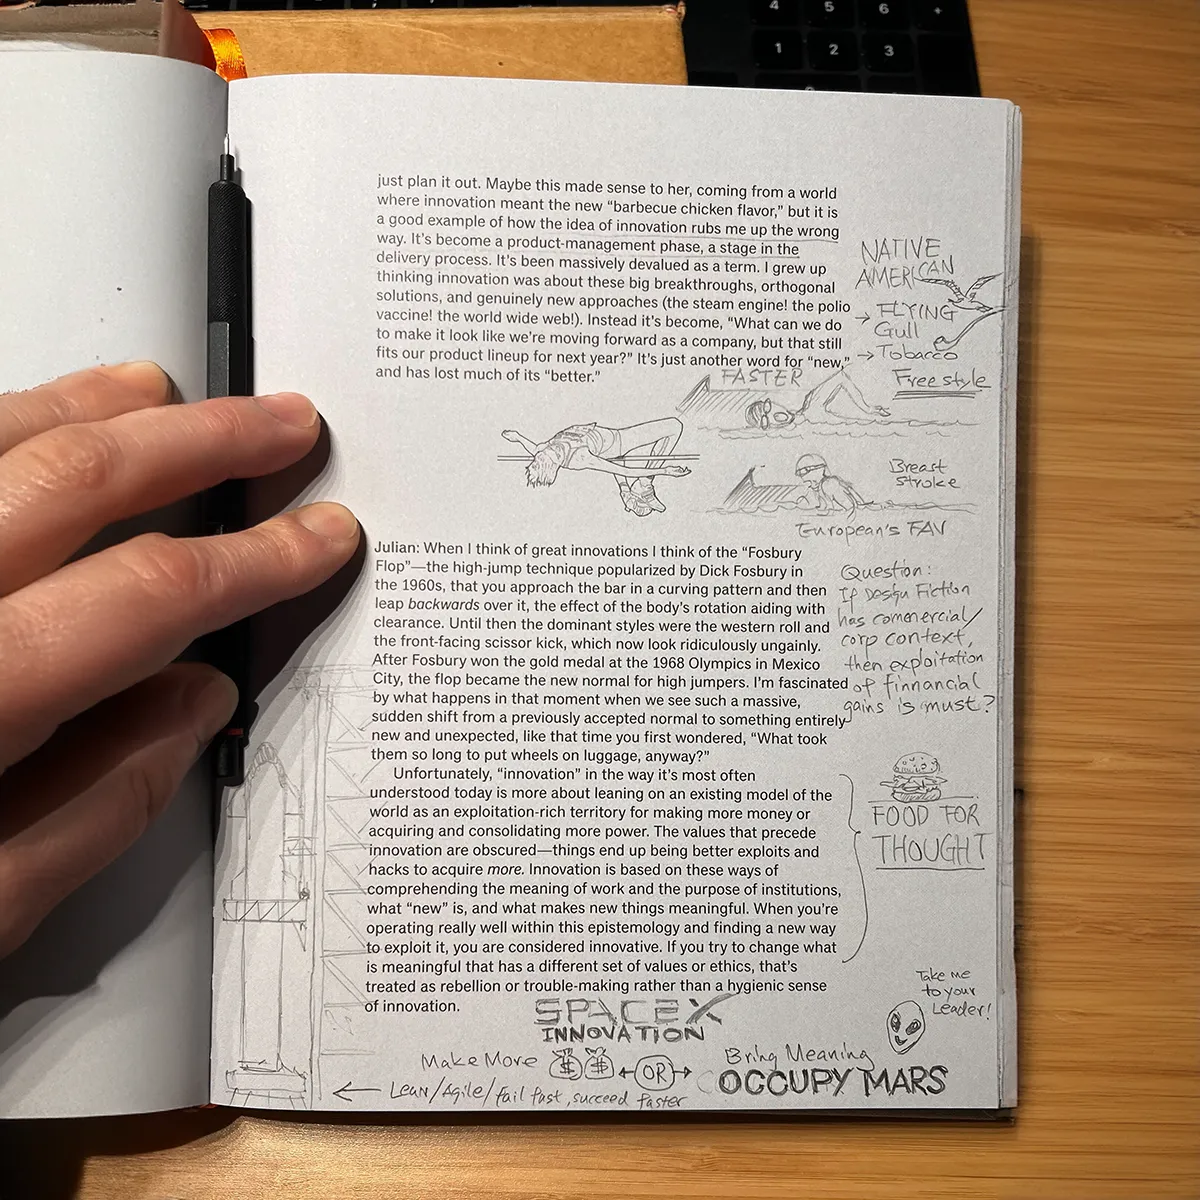 4 5 6 +
1 2 3
just plan it out. Maybe this made sense to her, coming from a world
where innovation meant the new “barbecue chicken flavor,” but it is
a good example of how the idea of innovation rubs me up the wrong
way. It’s become a product-management phase, a stage in the
delivery process. It’s been massively devalued as a term. I grew up
thinking innovation was about these big breakthroughs, orthogonal
solutions, and genuinely new approaches (the steam engine! the polio
vaccine! the world wide web!). Instead it’s become, “What can we do
to make it look like we’re moving forward as a company, but that still
fits our product lineup for next year?” It’s just another word for “new,”
and has lost much of its “better.”
NATIVE
AMERICAN
→ FLYING
Gull
→ Tobacco
FASTER
Freestyle
Breast
stroke
European's FAV
Julian: When I think of great innovations I think of the “Fosbury
Flop”—the high-jump technique popularized by Dick Fosbury in
the 1960s, that you approach the bar in a curving pattern and then
leap backwards over it, the effect of the body’s rotation aiding with
clearance. Until then the dominant styles were the western roll and
the front-facing scissor kick, which now look ridiculously ungainly.
After Fosbury won the gold medal at the 1968 Olympics in Mexico
City, the flop became the new normal for high jumpers. I’m fascinated
by what happens in that moment when we see such a massive,
sudden shift from a previously accepted normal to something entirely
new and unexpected, like that time you first wondered, “What took
them so long to put wheels on luggage, anyway?”
Unfortunately, “innovation” in the way it’s most often
understood today is more about leaning on an existing model of the
world as an exploitation-rich territory for making more money or
acquiring and consolidating more power. The values that precede
innovation are obscured—things end up being better exploits and
hacks to acquire more. Innovation is based on these ways of
comprehending the meaning of work and the purpose of institutions,
what “new” is, and what makes new things meaningful. When you’re
operating really well within this epistemology and finding a new way
to exploit it, you are considered innovative. If you try to change what
is meaningful that has a different set of values or ethics, that’s
treated as rebellion or trouble-making rather than a hygienic sense
of innovation.
Question:
If Design Fiction
has commercial/
corp context,
then exploitation
of finnancial
gains is must?
FOOD FOR
THOUGHT
Take me
to your
Leader!
SPACEX
INNOVATION
Make More $ $ ← OR → Bring Meaning
OCCUPY MARS
← Lean/Agile/fail fast, succeed faster